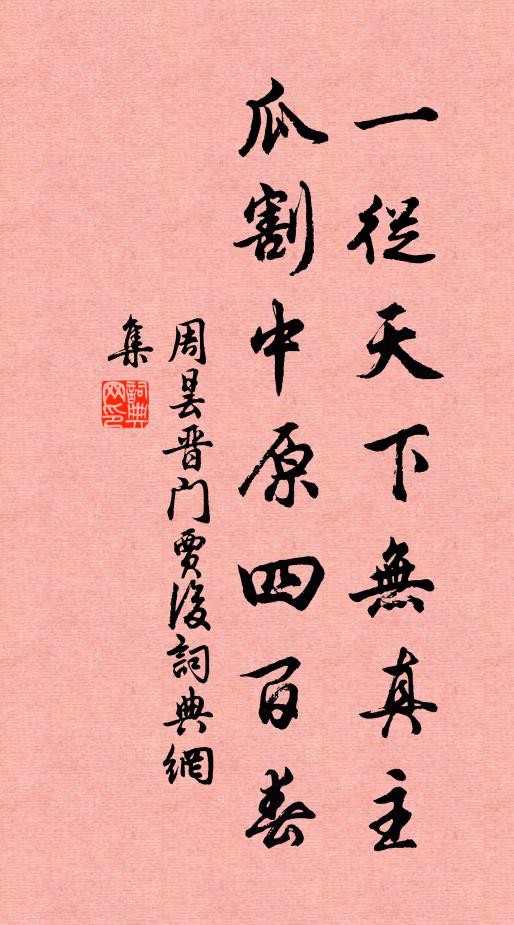 一從天下無真主
瓜割中原四百春
周昙晋门賈後詞典網
集
詞典網印